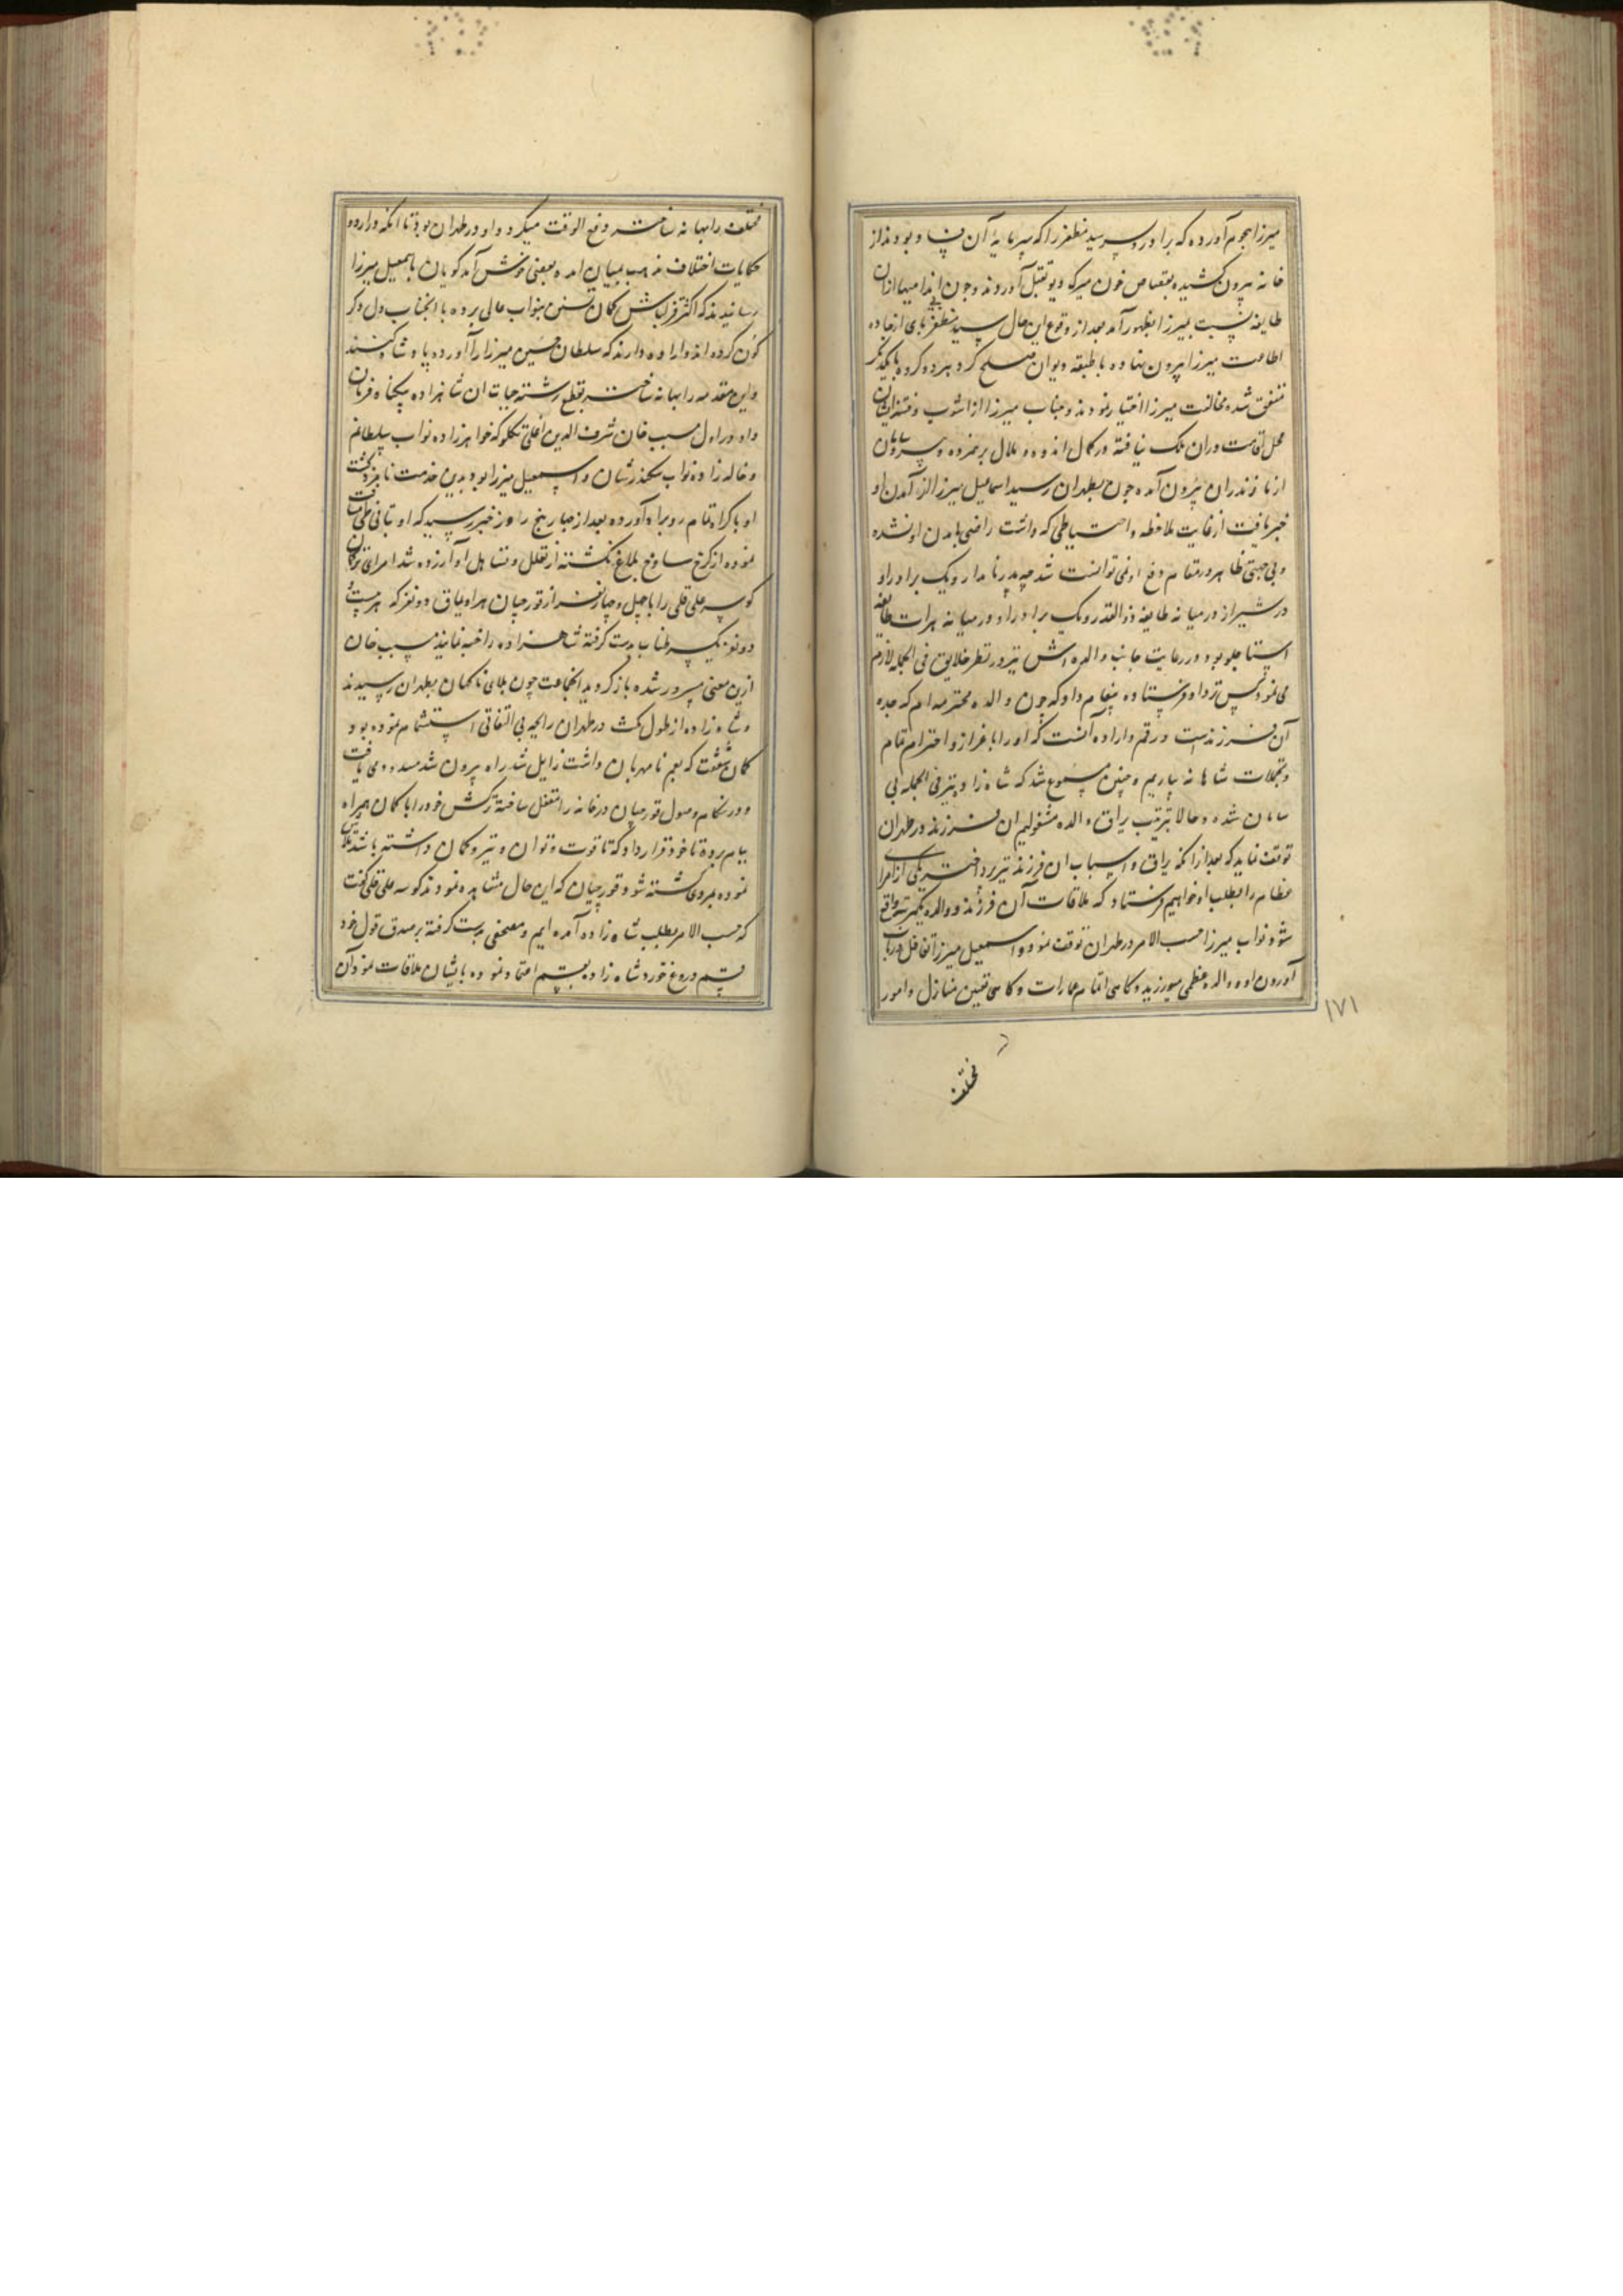 میرزا هجوم آورده که برادر و پسر سید مظفر را که سرمایهٔ آن فساد بودند از
خانه بیرون کشیده بقصاص خون میرک دیو بقتل آوردند و چون ایذا میها ازان
طایفه نسبت بمیرزا بظهور آمد بعد از وقوع این حال سید مظفر پای از جاده
اطاعت میرزا بیرون نهاده با طبقه دیوان صلح کرد هر دو کروه با یکدیگر
متفق شده مخالفت میرزا اختیار نمودند و جناب میرزا از آشوب و فتنه ایشان
محل اقامت در ان ملک نیافته در کمال اندوه و ملال بر غمزده و بی سروسامان
از مازندران بیرون آمده چون بطهران رسید اسماعیل میرزا از آمدن او
خبر یافت از غایت ملاحظه و احتیاطی که داشت راضی بامدن او نشده
و بی جهتی ظاهر در مقام دفع او نمی توانست شد چه پدر نامدار و یک برادر او
در شیراز در میانه طایفه ذوالقدر و یک برادر او در میانه هرات طایفه
استاجلو بود و رعایت جانب والده اش نیز در نظر خلایق فی الجمله لازم
می نمود پس نزد او فرستاده پیغام داد که چون والده محترمه ام که جده
آن فرزندست در قم و اراده آنست که او را باعزاز و احترام تمام
و تجملات شاهانه بیاریم و چنین مسموع شد که شاه زاده نیز فی الجمله بی
سامان شده و حالا بترتیب یراق والده مشغولیم ان فرزند در طهران
توقف نماید که بعد از انکه یراق و اسباب ان فرزند نیز پرداخته یکی از امرا
عظام را بطلب او خواهیم فرستاد که ملاقات آن فرزند و والده یکمرتبه واقع
شود نواب میرزا حسب الامر در طهران توقف نموده و اسمعیل میرزا تغافل در باب
آوردن او و والده عظمی میورزید و کاهی اتمام عمارات و کاهی تعیین منازل و امور
۱۷۱
مختلف
مختلف را بهانه ساخته دفع الوقت میکرد و او در طهران بود تا انکه در اردو
حکایات اختلاف مذهب بمیان امده بعضی خوش آمدکویان باسمعیل میرزا
رسانیدند که اکثر قزلباش کمان تسنن بنواب عالی برده با انجناب دل دکر
کون کرده اند و اراده دارند که سلطان حسین میرزا را آورده پادشاه کنند
و این مقدمه را بهانه ساخته بقطع رشته حیات ان شاهزاده بیکناه فرمان
داد و در اول مسیب خان شرف الدین اغلی تکلو که خواهرزاده نواب سلطانم
و خاله زاده نواب سکندرشان و اسمعیل میرزا بود بدین خدمت نامزد کشت
او باکراه تمام رو براه آورده بعد از چهار پنج روز خبر رسید که او بتانی طی مسافت
نموده از کرخ ساوخ بلاغ نکشته از تعلل و تساهل او آزرده شد امرای ترکمان
کوسه علی قلی را با چهل و چهار نفر از قورچیان همراه یاق دو نفر که هر یک
دو نفر یک سر طناب بدست کرفته شاهزاده را خبه نمایند مسیب خان
ازین معنی مسرور شده باز کردید انجماعت چون بلای ناکهان بطهران رسیدند
و شاه زاده از طول مکث در طهران رایحه بی التفاتی استشمام نموده بود و
کمان شفقت که بعم نامهربان داشت زایل شد راه بیرون شد مسدود می یافت
و در هنکام وصول قورچیان در خانه را مقفل ساخته ترکش خود را با کمان همراه
ببام برده تا خود قرار داد که تا قوت و توان و تیر و کمان داشته باشد تلاش
نموده بمردی کشته شود قورچیان که این حال مشاهده نمودند کوسه علی قلی کفت
که حسب الامر بطلب شاه زاده آمده ایم و مصحفی بدست کرفته بر صدق قول خود
قسم دروغ خورد شاه زاده بقسم اعتماد نموده بایشان ملاقات نمود آن